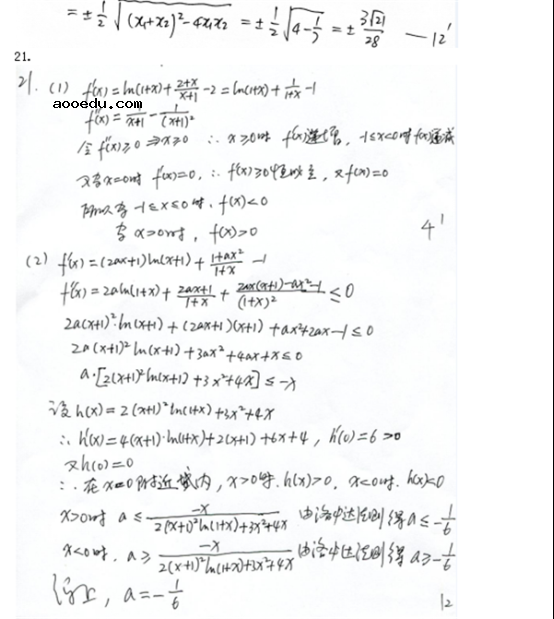 = ±1/2 √((x₁+x₂)²-4x₁x₂) = ±1/2 √(4-1/7) = ± 3√21/28 — 12'
21.
21. (1) f'(x) = ln(1+x) + (2+x)/(x+1) - 2 = ln(1+x) + 1/(1+x) - 1
aooedu.com
f''(x) = 1/(x+1) - 1/(x+1)²
令f''(x)≥0 ⇒ x≥0 ∴ x≥0时 f'(x)递增, -1≤x<0时f'(x)递减
又当x=0时 f'(x)=0, ∴ f'(x)≥0恒成立, 又f(x)=0
所以当 -1≤x≤0时, f(x)<0
当 x>0时, f(x)>0 4'
(2) f'(x) = (2ax+1)ln(x+1) + (1+ax²)/(1+x) - 1
f''(x) = 2aln(1+x) + (2ax+1)/(1+x) + (2ax(x+1)-ax²-1)/(1+x)² ≤0
2a(x+1)²·ln(x+1) + (2ax+1)(x+1) + ax²+2ax-1≤0
2a(x+1)² ln(x+1) + 3ax²+4ax+x≤0
a·[2(x+1)² ln(x+1) + 3x²+4x] ≤ -x
设 h(x) = 2(x+1)² ln(1+x) + 3x²+4x
∴ h'(x) = 4(x+1)·ln(1+x) + 2(x+1) + 6x+4, h'(0)=6>0
又h(0)=0
∴ 在x=0附近域内, x>0时, h(x)>0, x<0时, h(x)<0
x>0时 a ≤ -x/(2(x+1)² ln(1+x)+3x²+4x) 由洛必达法则得 a≤-1/6
x<0时, a ≥ -x/(2(x+1)² ln(1+x)+3x²+4x) 由洛必达法则得 a≥-1/6
综上, a = -1/6 12